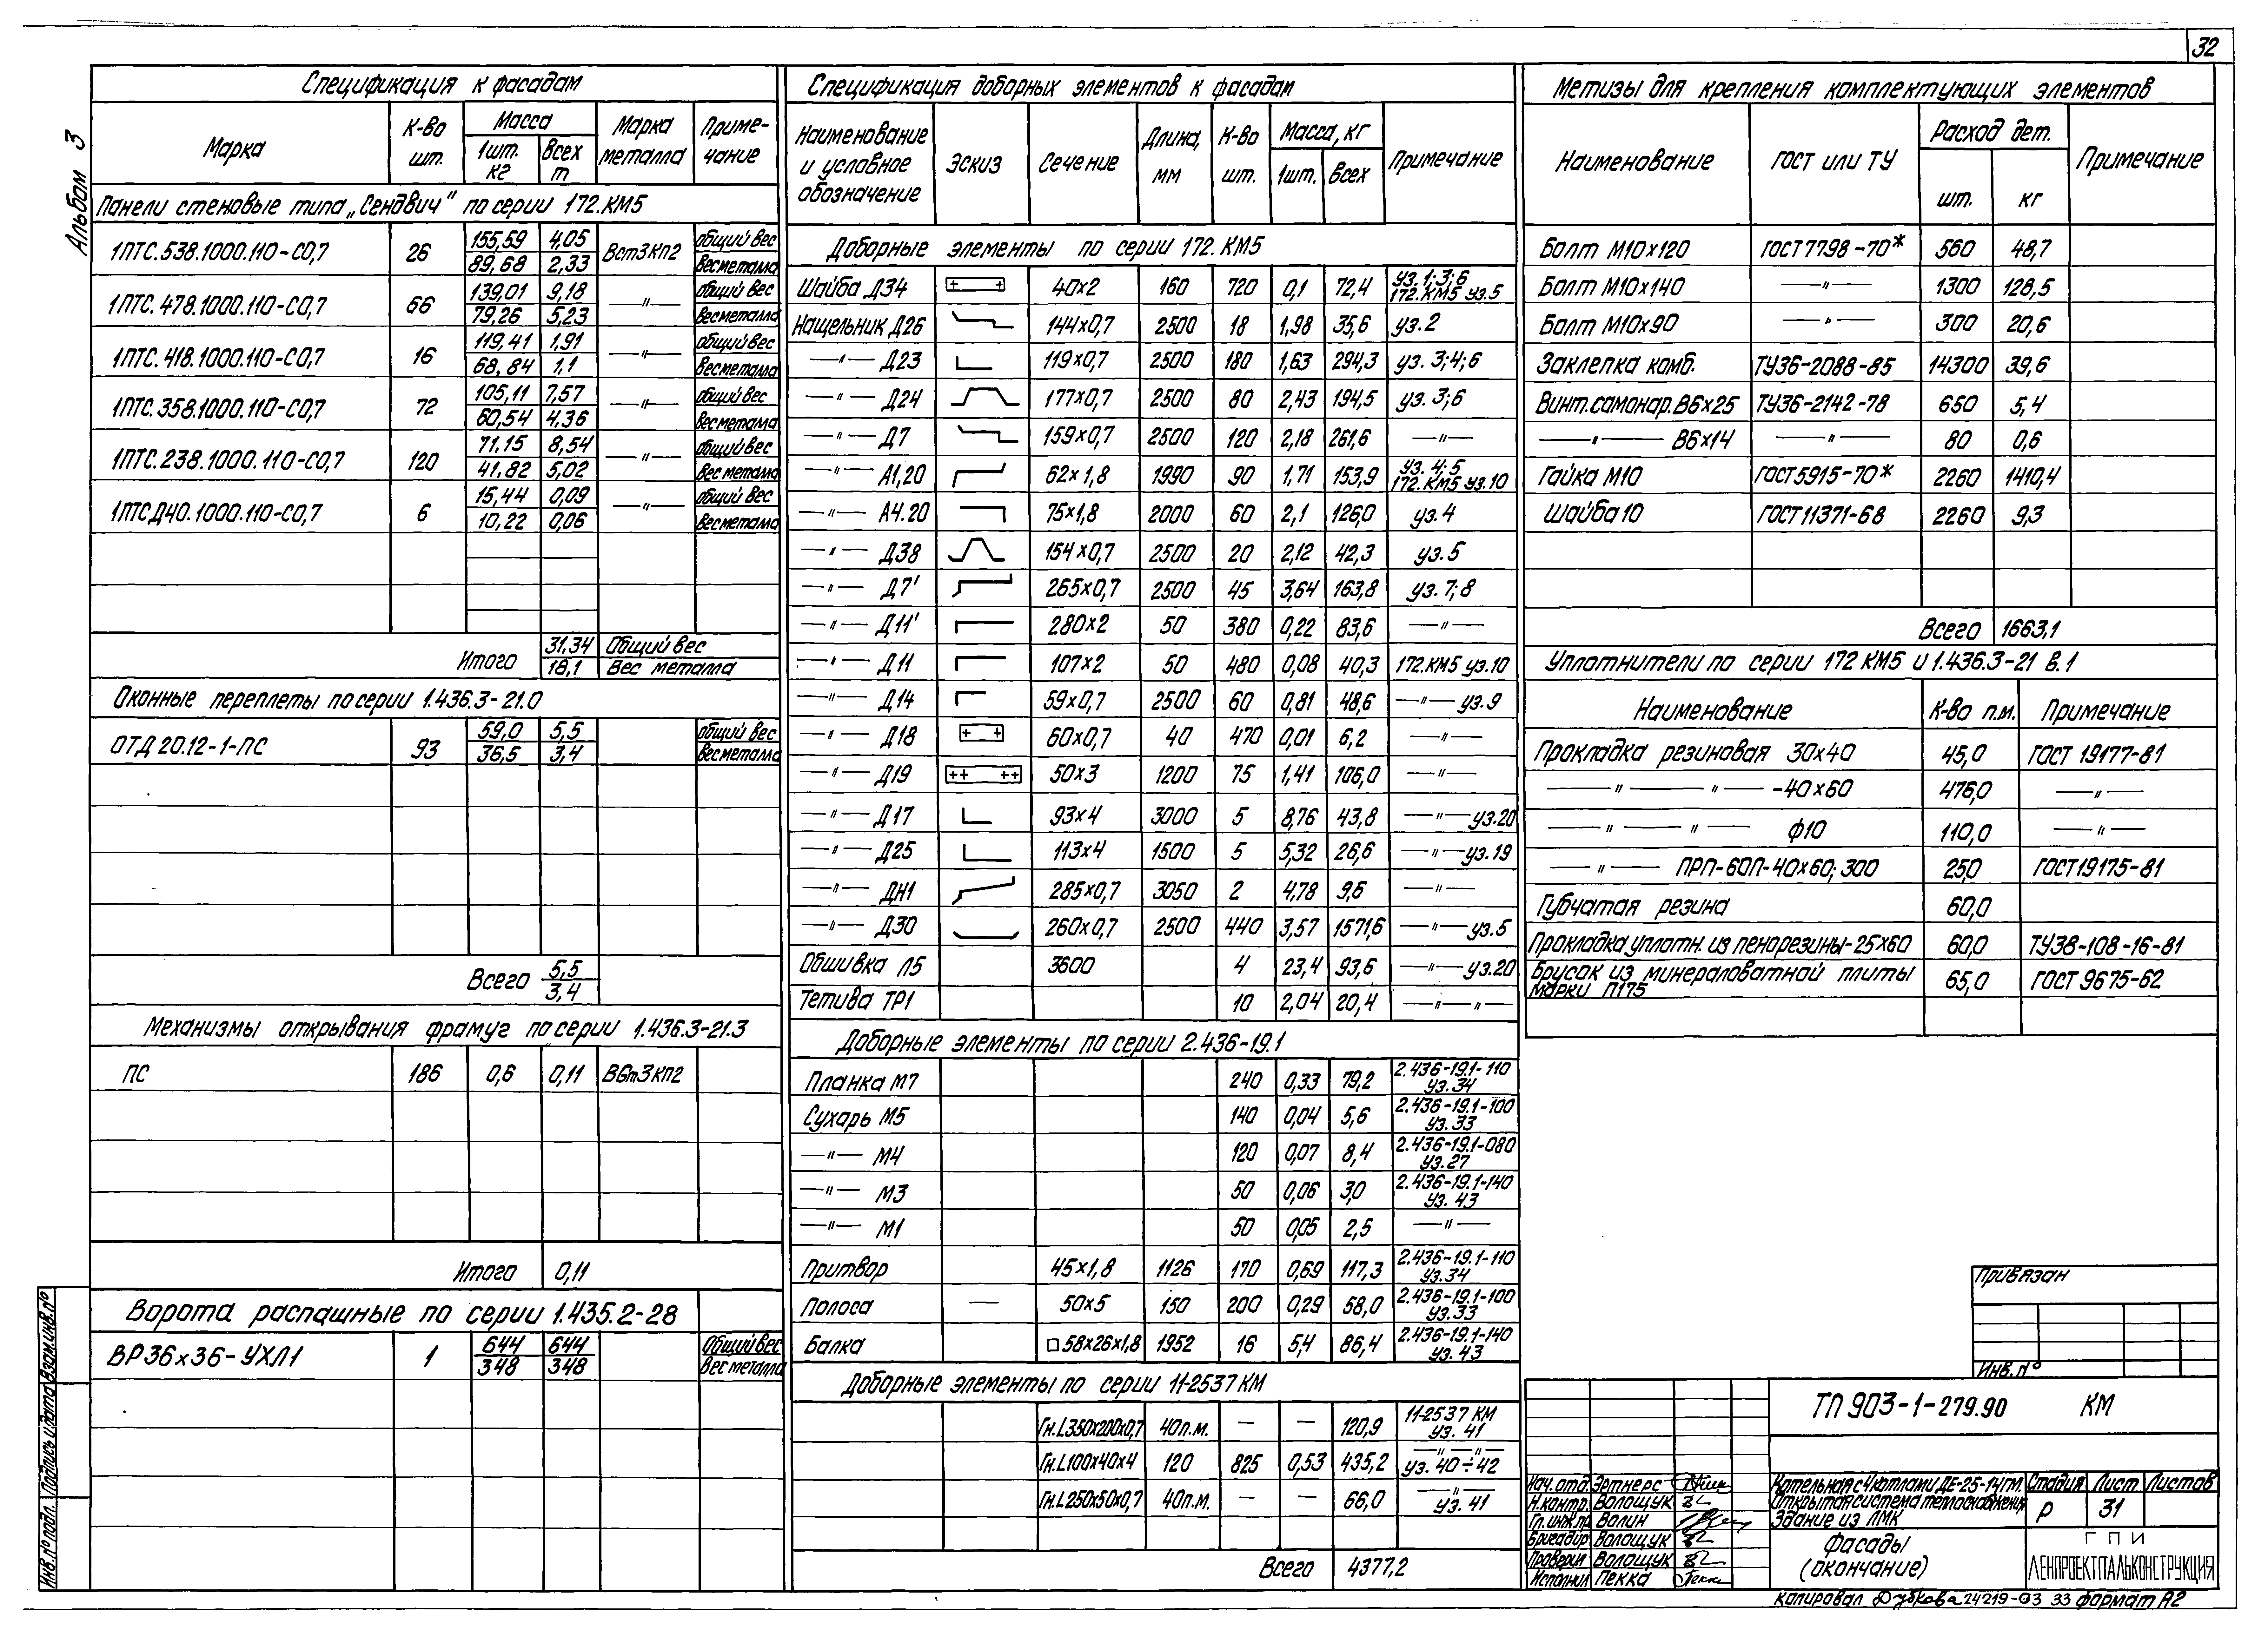 32
Альбом 3
Спецификация к фасадам
Марка К-во шт. Масса 1шт. кг Всех т Марка металла Приме- чание
Панели стеновые типа „Сендвич" по серии 172.КМ5
1ПТС.538.1000.110-С0,7 26 155,59 4,05 Вст3кп2 общий вес
89,68 2,33 Вес металла
1ПТС.478.1000.110-С0,7 66 139,01 9,18 —〃— общий вес
79,26 5,23 Вес металла
1ПТС.418.1000.110-С0,7 16 119,41 1,91 —〃— общий вес
68,84 1,1 Вес металла
1ПТС.358.1000.110-С0,7 72 105,11 7,57 —〃— общий вес
60,54 4,36 Вес металла
1ПТС.238.1000.110-С0,7 120 71,15 8,54 —〃— общий вес
41.82 5,02 Вес металла
1ПТСД40.1000.110-С0,7 6 15,44 0,09 —〃— общий вес
10,22 0,06 Вес металла
Итого 31,34 Общий вес
18,1 Вес металла
Оконные переплеты по серии 1.436.3-21.0
ОТД 20.12-1-ПС 93 59,0 5,5 общий вес
36,5 3,4 Вес металла
Всего 5,5
3,4
Механизмы открывания фрамуг по серии 1.436.3-21.3
ПС 186 0,6 0,11 ВСт3кп2
Итого 0,11
Ворота распашные по серии 1.435.2-28
ВР36х36-УХЛ1 1 644 644 Общий вес
348 348 Вес металла
Спецификация доборных элементов к фасадам
Наименование и условное обозначение Эскиз Сечение Длина, мм К-во шт. Масса, кг 1шт. Всех Примечание
Доборные элементы по серии 172.КМ5
Шайба Д34 40х2 160 720 0,1 72,4 уз.1;3;6 172.КМ5 уз.5
Нащельник Д26 144х0,7 2500 18 1,98 35,6 уз.2
—〃— Д23 119х0,7 2500 180 1,63 294,3 уз. 3;4;6
—〃— Д24 177х0,7 2500 80 2,43 194,5 уз. 3;6
—〃— Д7 159х0,7 2500 120 2,18 261,6 —〃—
—〃— А1,20 62х1,8 1990 90 1,71 153,9 уз. 4;5 172.КМ5 уз.10
—〃— А4.20 75х1,8 2000 60 2,1 126,0 уз.4
—〃— Д38 154х0,7 2500 20 2,12 42,3 уз.5
—〃— Д7' 265х0,7 2500 45 3,64 163,8 уз.7;8
—〃— Д11' 280х2 50 380 0,22 83,6 —〃—
—〃— Д11 107х2 50 480 0,08 40,3 172.КМ5 уз.10
—〃— Д14 59х0,7 2500 60 0,81 48,6 —〃— уз.9
—〃— Д18 60х0,7 40 470 0,01 6,2 —〃—
—〃— Д19 50х3 1200 75 1,41 106,0 —〃—
—〃— Д17 93х4 3000 5 8,76 43,8 —〃— уз.20
—〃— Д25 113х4 1500 5 5,32 26,6 —〃— уз.19
—〃— ДН1 285х0,7 3050 2 4,78 9,6 —〃—
—〃— Д30 260х0,7 2500 440 3,57 1571,6 —〃— уз.5
Обшивка Л5 3600 4 23,4 93,6 —〃— уз.20
Тетива ТР1 10 2,04 20,4 —〃—〃
Доборные элементы по серии 2.436-19.1
Планка М7 240 0,33 79,2 2.436-19.1-110 уз.34
Сухарь М5 140 0,04 5,6 2.436-19.1-100 уз.33
—〃— М4 120 0,07 8,4 2.436-19.1-080 уз.27
—〃— М3 50 0,06 3,0 2.436-19.1-140 уз.43
—〃— М1 50 0,05 2,5 —〃—
Притвор 45х1,8 1126 170 0,69 117,3 2.436-19.1-110 уз.34
Полоса — 50х5 150 200 0,29 58,0 2.436-19.1-100 уз.33
Балка □58х26х1,8 1952 16 5,4 86,4 2.436-19.1-140 уз.43
Доборные элементы по серии 11-2537 КМ
Гн.L350х200х0,7 40п.м. — — 120,9 11-2537 КМ уз. 41
Гн.L100х40х4 120 825 0,53 435,2 —〃—〃— уз.40÷42
Гн.L250х50х0,7 40п.м. — — 66,0 —〃— уз.41
Всего 4377,2
Метизы для крепления комплектующих элементов
Наименование ГОСТ или ТУ Расход дет. шт. кг Примечание
Болт М10х120 ГОСТ7798-70* 560 48,7
Болт М10х140 —〃— 1300 128,5
Болт М10х90 —〃— 300 20,6
Заклепка комб. ТУ36-2088-85 14300 39,6
Винт.самонар.В6х25 ТУ36-2142-78 650 5,4
—〃— В6х14 —〃— 80 0,6
Гайка М10 ГОСТ5915-70* 2260 1410,4
Шайба 10 ГОСТ11371-68 2260 9,3
Всего 1663,1
Уплотнители по серии 172 КМ5 и 1.436.3-21 в.1
Наименование К-во п.м. Примечание
Прокладка резиновая 30х40 45,0 ГОСТ 19177-81
—〃—〃— -40х60 476,0 —〃—
—〃—〃— ф10 110,0 —〃—
—〃— ПРП-60П-40х60;300 25,0 ГОСТ19175-81
Губчатая резина 60,0
Прокладка уплотн. из пенорезины-25х60 60,0 ТУ38-108-16-81
Брусок из минераловатной плиты марки П175 65,0 ГОСТ 9675-62
Привязан
Инв.№
ТП 903-1-279.90 КМ
Нач.отд. Эртнерс
Н.контр. Волощук
Гл.инж.пр. Валин
Бригадир Волощук
Проверил Волощук
Исполнил Пекка
Котельная с 4 котлами ДЕ-25-14ГМ.
Открытая система теплоснабжения
Здание из ЛМК
Стадия Лист Листов
Р 31
Фасады
(окончание)
ГПИ
ЛЕНПРОЕКТСТАЛЬКОНСТРУКЦИЯ
Инв.№ подл. Подпись и дата Взам.инв.№
Копировал Дубкова 24219-03 33 Формат А2